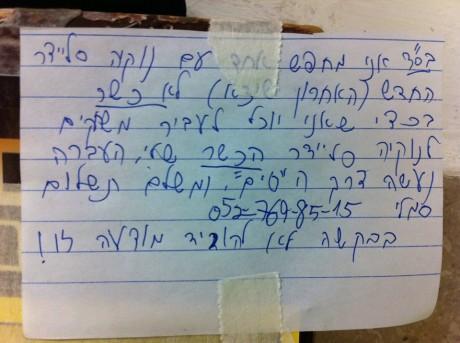 בס"ד אני מחפש אחד עם נוקיה סליידר
החדש (האחרון שיצא) לא כשר
בכדי שאני יוכל לעביר משחקים
לנוקיה סליידר הכשר שלי, העברה
נעשה דרך ה"סים", ומשלם תשלום
סמלי 052-769-85-15
בבקשה לא להוריד מודעה זו!